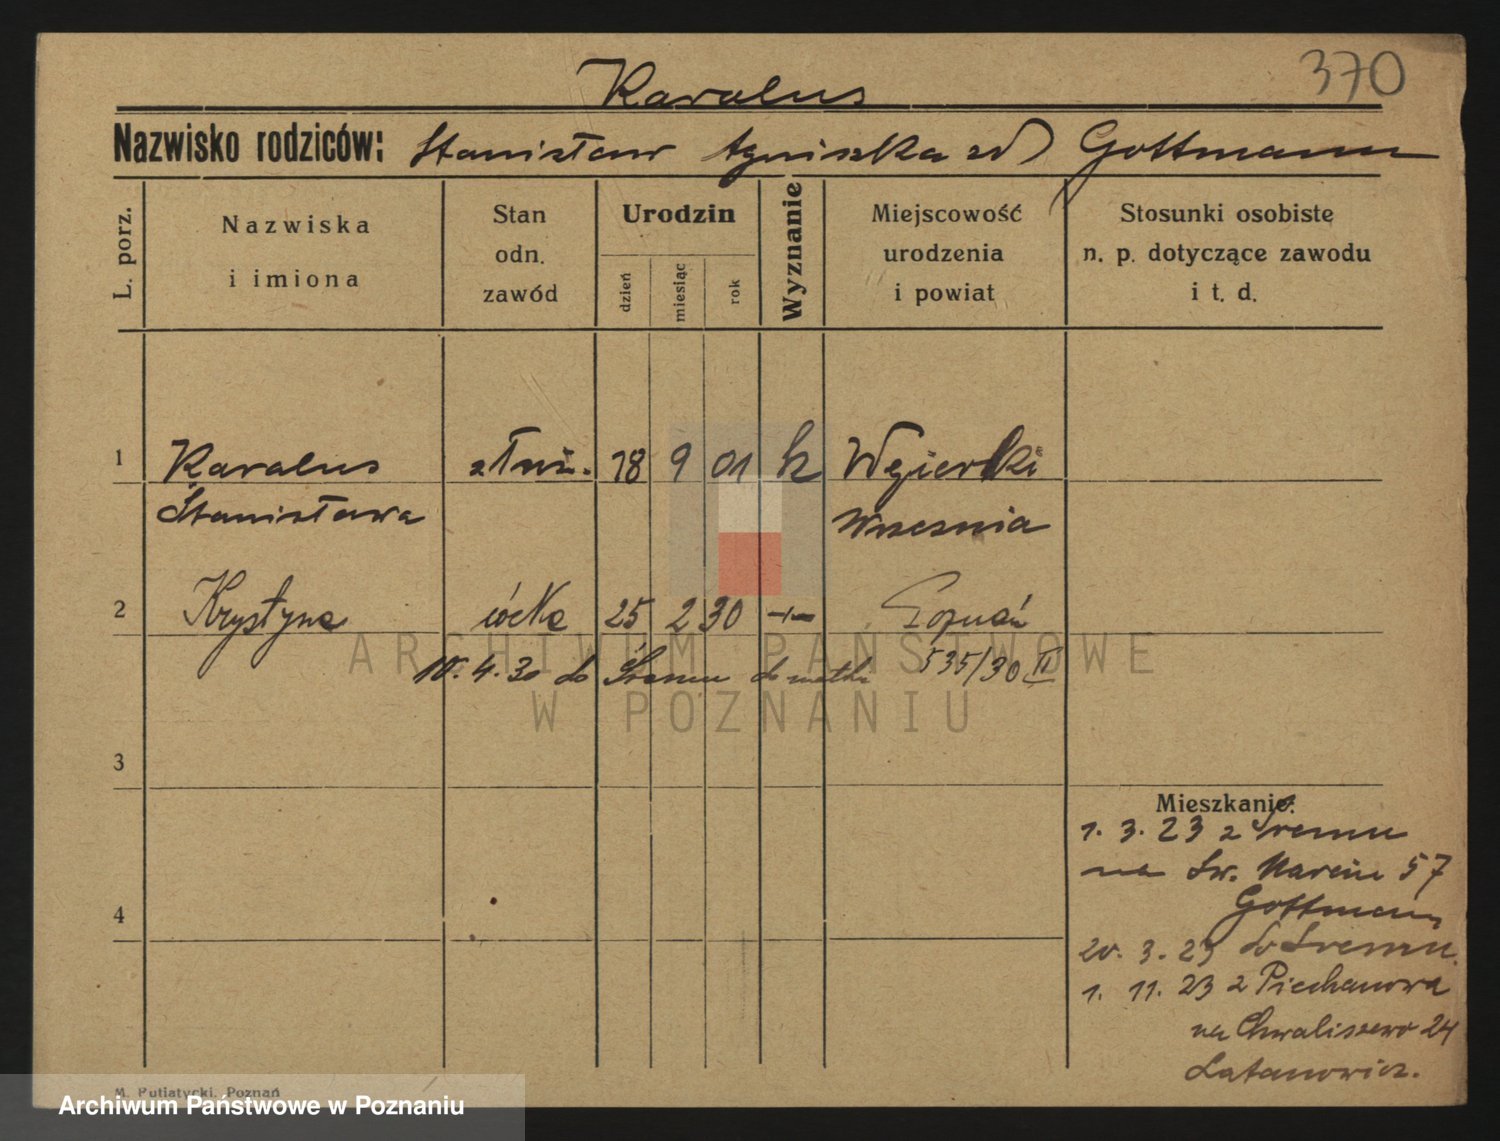 370
Karalus
Nazwisko rodziców: Stanisław Agnieszka zd Gottmann
L. porz.
Nazwiska i imiona
Stan odn. zawód
Urodzin
dzień
miesiąc
rok
Wyznanie
Miejscowość urodzenia i powiat
Stosunki osobiste n. p. dotyczące zawodu i t. d.
1 Karalus służ. 18 9 01 k Węgierki
Stanisława Września
2 Krystyna córka 25 2 30 -"- Poznań
10. 4. 30 do Śremu do matki 535/30 II
3
Mieszkanie:
1. 3. 23 z Śremu
na Św. Marcin 57
Gottmann
4
20. 3. 23 do Śremu.
1. 11. 23 z Piechanowa
na Chwaliszewo 24
Latanowicz.
M. Putiatycki, Poznań
ARCHIWUM PAŃSTWOWE
W POZNANIU
Archiwum Państwowe w Poznaniu